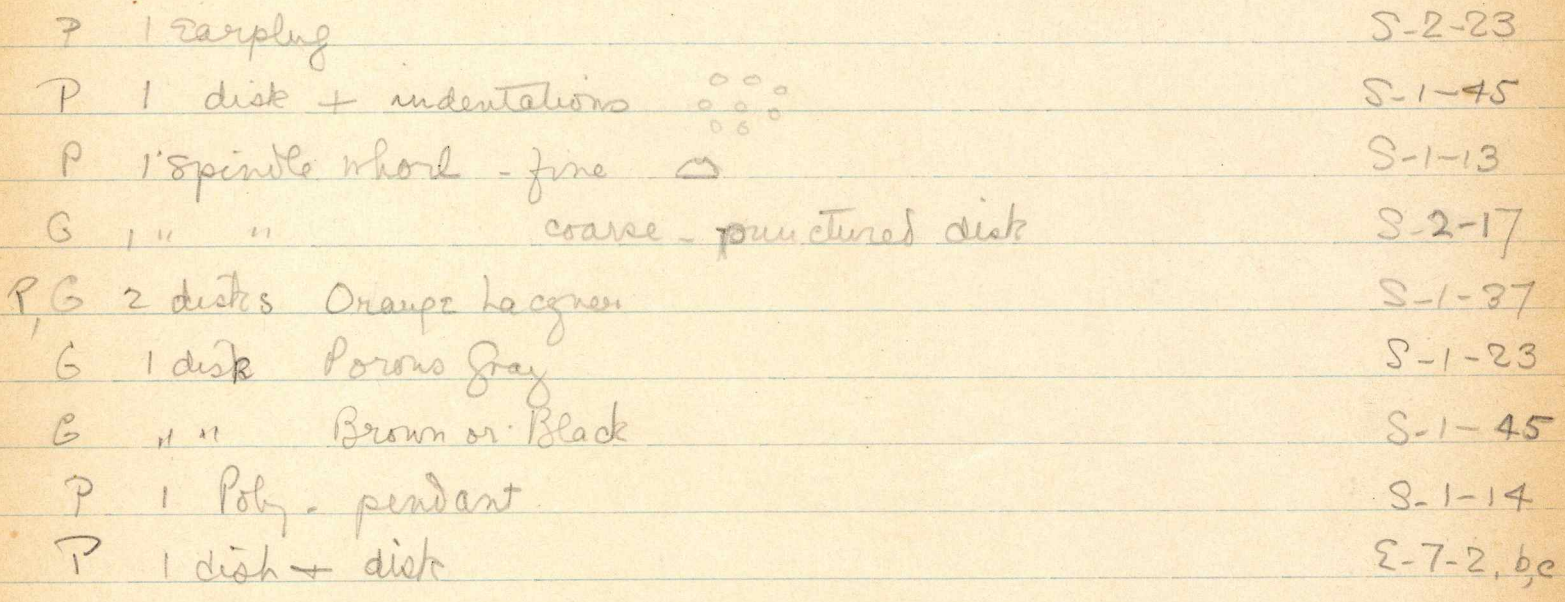 P 1 Earplug S-2-23
P 1 disk + indentations S-1-45
P 1 Spindle whorl - fine S-1-13
G 1 " " coarse - punctured disk S-2-17
P, G 2 disks Orange Lacquer S-1-37
G 1 disk Porous Gray S-1-23
G " " Brown or Black S-1-45
P 1 Poly - pendant S-1-14
P 1 dish + disk E-7-2, b,c